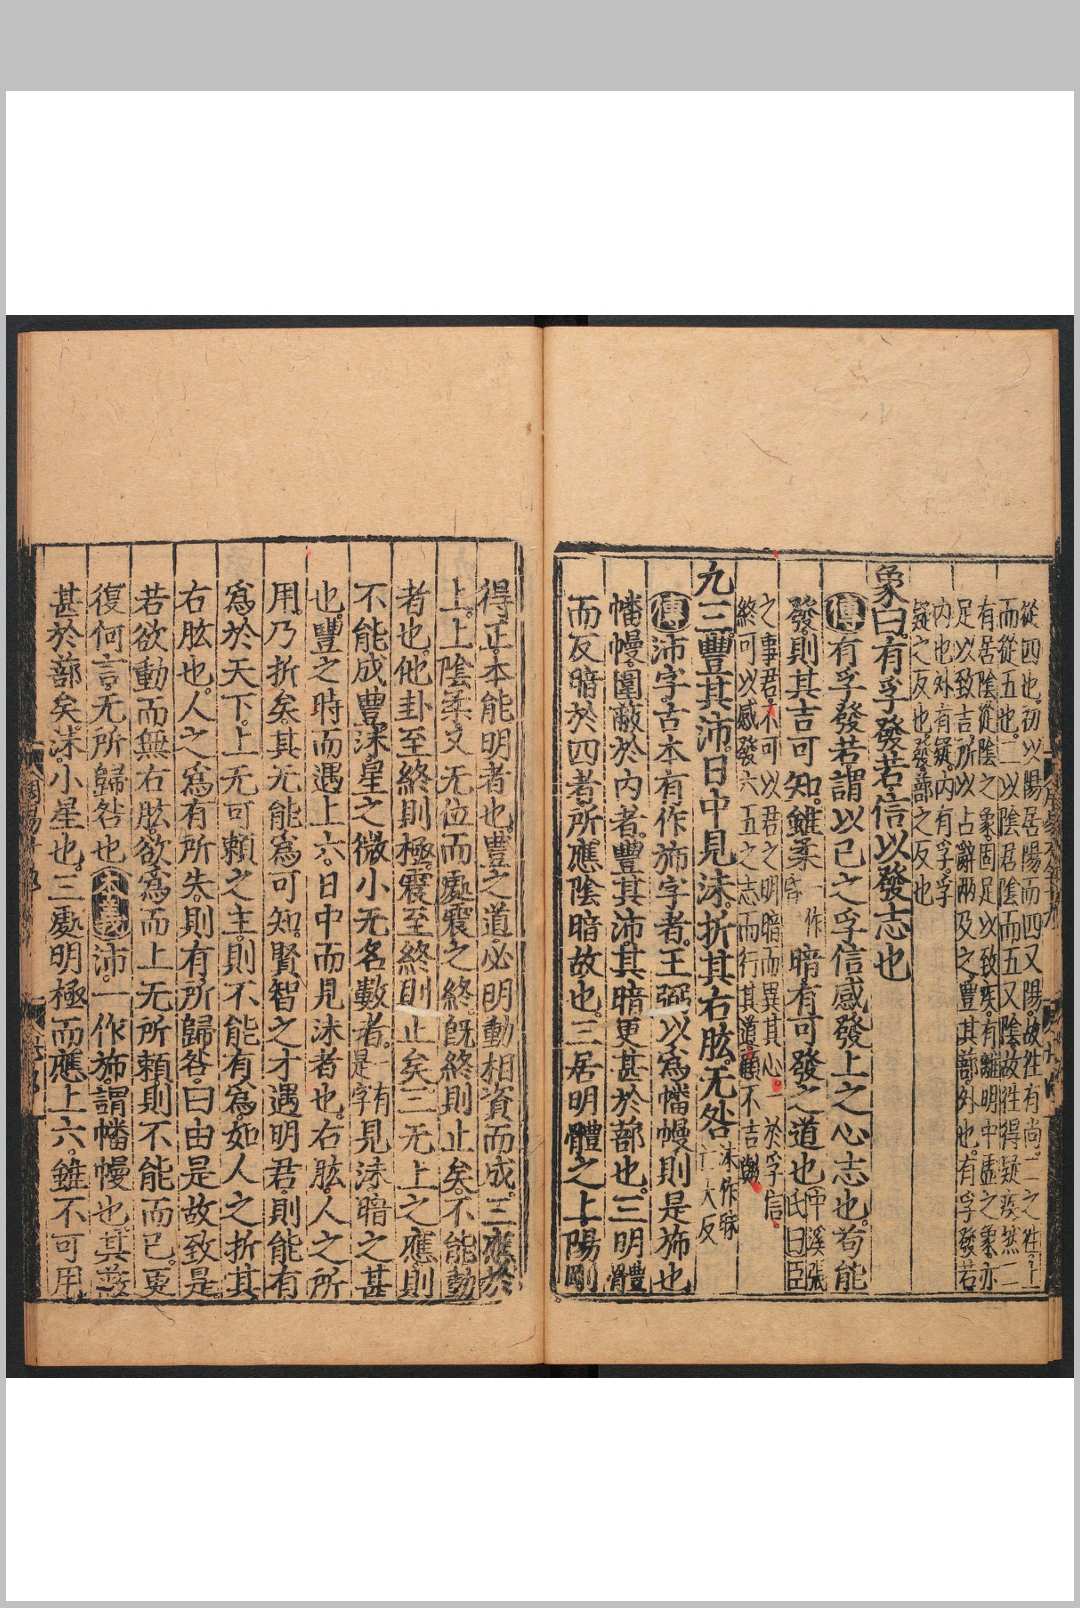 從四也初以陽居陽而四又陽故往有尚二之往上
而從五也二以陰居陰而五又陰故往得疑疾然二
有居陰從陰之象固足以致疾有離明中虛之象亦
足以致吉所以占辭兩及之豐其蔀外也有孚發若
內也外有疑內有孚孚
疑之反也發蔀之反也
象曰有孚發若信以發志也
傳有孚發若謂以己之孚信感發上之心志也苟能
發則其吉可知雖柔昏一作暗有可發之道也中溪張氏曰臣
之事君不可以君之明暗而異其心一於孚信
終可以感發六五之志而行其道顧不吉歟
九三豐其沛日中見沬折其右肱无咎沬作昧亡大反
傳沛字古本有作旆字者王弼以為幡幔則是旆也
幡幔圍蔽於內者豐其沛其暗更甚於蔀也三明體
而反暗於四者所應陰暗故也三居明體之上陽剛
得正本能明者也豐之道必明動相資而成三應於
上上陰柔又无位而處震之終既終則止矣不能動
者也他卦至終則極震至終則止矣三无上之應則
不能成豐沬星之微小无名數者一有是字見沬暗之甚
也豐之時而遇上六日中而見沬者也右肱人之所
用乃折矣其无能為可知賢智之才遇明君則能有
為於天下上无可賴之主則不能有為如人之折其
右肱也人之為有所失則有所歸咎曰由是故致是
若欲動而無右肱欲為而上无所賴則不能而已更
復何言无所歸咎也本義沛一作旆謂幡幔也其蔽
甚於蔀矣沬小星也三處明極而應上六雖不可用